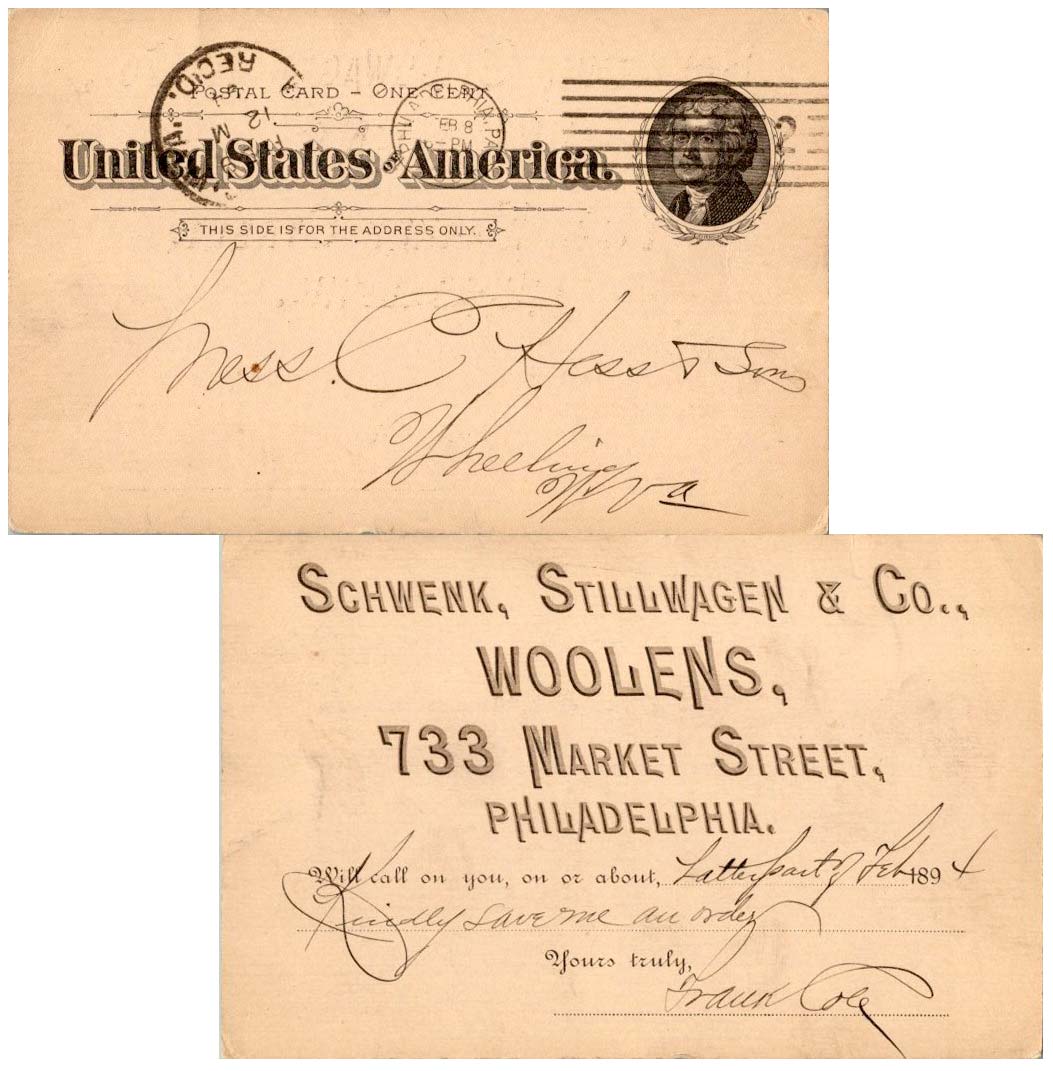 POSTAL CARD – ONE CENT.
United States of America.
THIS SIDE IS FOR THE ADDRESS ONLY.
REC'D.
12
M
PHILADELPHIA, PA.
FEB 8
PM
Mess. C Hess & Sons
Wheeling
W Va
SCHWENK, STILLWAGEN & CO.,
WOOLENS,
733 MARKET STREET,
PHILADELPHIA.
Will call on you, on or about, Latter part of Feb 1894
Kindly save me an order
Yours truly,
Frank Cole